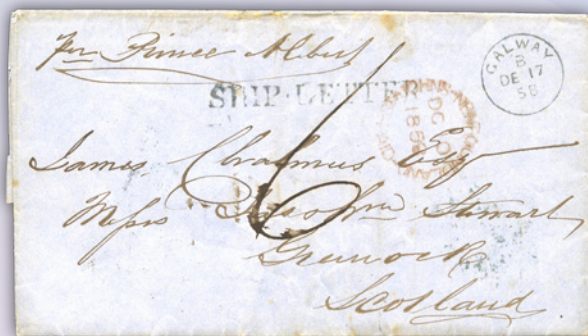 Per Prince Albert
SHIP-LETTER
GALWAY
B
DE 17
58
6
James Chalmers Esq
Messrs Stewart
Greenock
Scotland